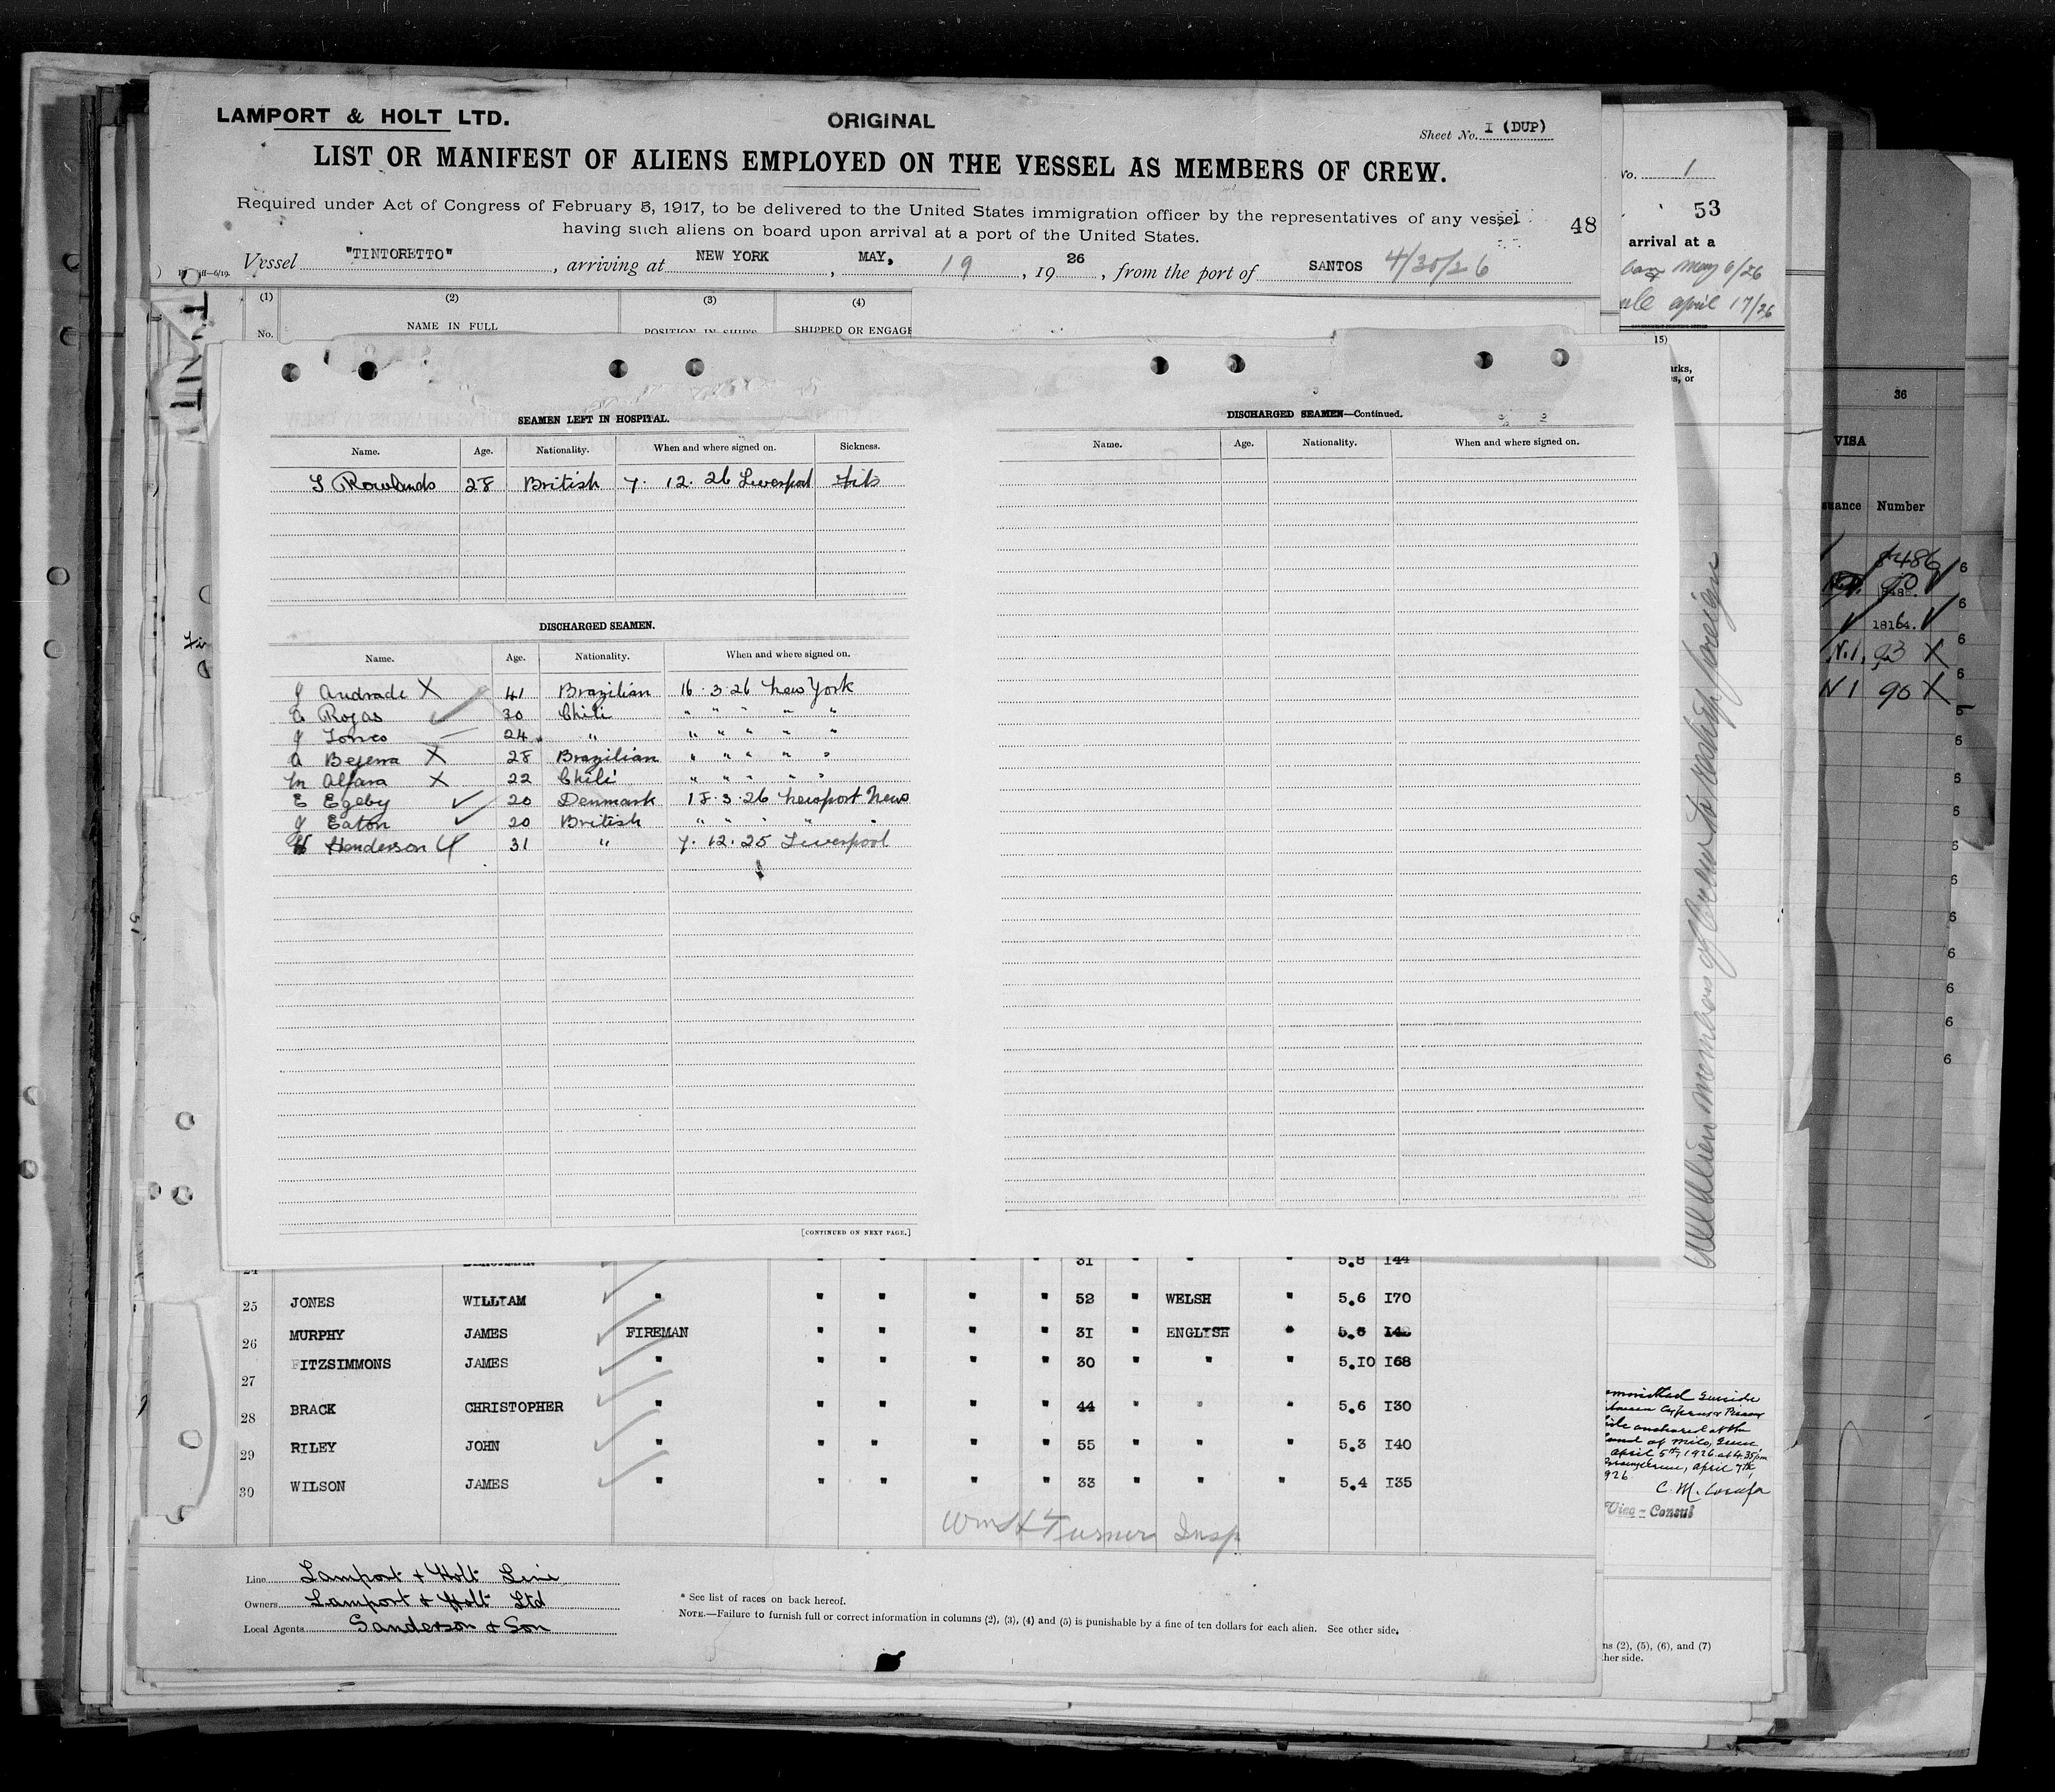 LAMPORT & HOLT LTD.
ORIGINAL
Sheet No. I (DUP)
LIST OR MANIFEST OF ALIENS EMPLOYED ON THE VESSEL AS MEMBERS OF CREW.
Required under Act of Congress of February 5, 1917, to be delivered to the United States immigration officer by the representatives of any vessel
having such aliens on board upon arrival at a port of the United States.
48
Vessel "TINTORETTO", arriving at NEW YORK, MAY, 19, 1926, from the port of SANTOS 4/30/26
(1) (2) (3) (4)
No. NAME IN FULL POSITION IN SHIP'S SHIPPED OR ENGAGE
No. 1
53
arrival at a
May 6/26
April 17/26
15)
SEAMEN LEFT IN HOSPITAL.
Name. Age. Nationality. When and where signed on. Sickness.
S Rowlands 28 British 7. 12. 26 Liverpool Fits
DISCHARGED SEAMEN.
Name. Age. Nationality. When and where signed on.
J Andrade X 41 Brazilian 16.3.26 New York
A Rojas ✓ 30 Chili " " " " "
J Torres 24 " " " " " "
A Bejerra X 28 Brazilian " " " " "
M Alfara X 22 Chili " " " " "
E Egeby ✓ 20 Denmark 18.3.26 Newport News
J Eaton ✓ 20 British " " " " "
Henderson 31 " 7.12.25 Liverpool
[CONTINUED ON NEXT PAGE.]
DISCHARGED SEAMEN—Continued.
Name. Age. Nationality. When and where signed on.
All Alien members of Crew to reship foreign
36
VISA
Number
8486
18164.
N.1, 93 X
N 1 90 X
24 31 " " " 5.8 144
25 JONES WILLIAM " " " " " 52 " WELSH " 5.6 170
26 MURPHY JAMES FIREMAN " " " " 31 " ENGLISH "
27 FITZSIMMONS JAMES " " " " " 30 " " " 5.10 168
28 BRACK CHRISTOPHER " " " " " 44 " " " 5.6 130
29 RILEY JOHN " " " " " 55 " " " 5.3 140
30 WILSON JAMES " " " " " 33 " " " 5.4 135
Wm H Turner Insp
Line Lamport & Holt Line
Owners Lamport & Holt Ltd
Local Agents Sanderson & Son
* See list of races on back hereof.
NOTE.—Failure to furnish full or correct information in columns (2), (3), (4) and (5) is punishable by a fine of ten dollars for each alien. See other side.
April 5th, 1926 at 4.35 pm
April 7th,
Vice-Consul
(2), (5), (6), and (7)
her side.